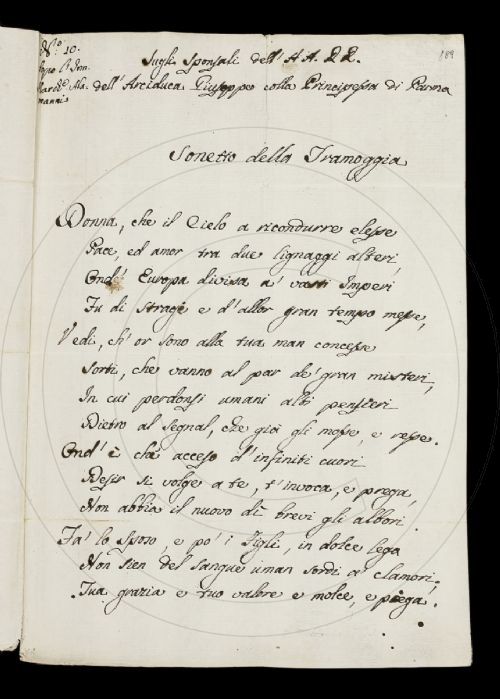 N.º 10.
189
Sugli Sponsali dell' A A. R R.
dell' Arciduca Giuseppe colla Principessa di Parma
Sonetto della Tramoggia
Donna, che il Cielo a ricondurre elesse
Pace, ed amor tra due lignaggi alteri,
Ond' Europa divisa a' vasti Imperi
Fu di stragi e d' allor gran tempo messe,
Vedi, ch' or sono alla tua man concesse
Sorti, che vanno al par de' gran misteri,
In cui perdonsi umani alti pensieri
Dietro al segnal, che gioi gli mosse, e resse.
Ond' è che acceso d' infiniti cuori
Desir si volge a te, t' invoca, e prega,
Non abbia il nuovo dì brevi gli albori.
Fa' lo Sposo, e po' i Figli, in dolce lega
Non sien del sangue uman sordi a' clamori;
Tua grazia e tuo valore e molce, e piega.